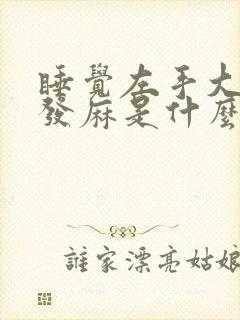 睡覺左手大
發麻是什麼
誰家漂亮姑娘